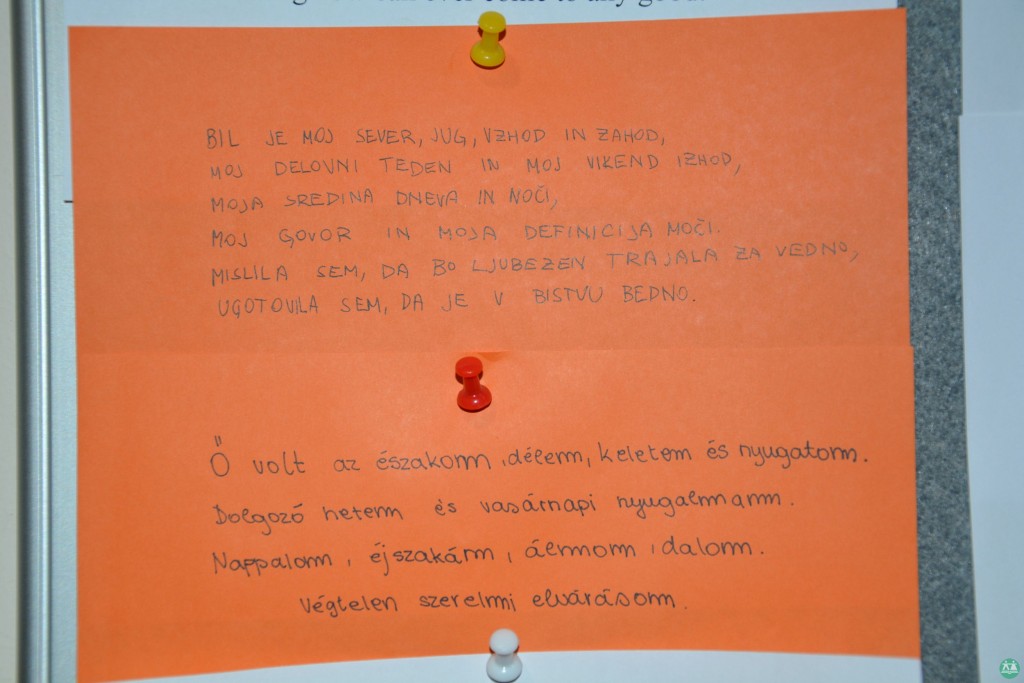 ever come to any good.
BIL JE MOJ SEVER, JUG, VZHOD IN ZAHOD,
MOJ DELOVNI TEDEN IN MOJ VIKEND IZHOD,
MOJA SREDINA DNEVA IN NOČI,
MOJ GOVOR IN MOJA DEFINICIJA MOČI.
MISLILA SEM, DA BO LJUBEZEN TRAJALA ZA VEDNO,
UGOTOVILA SEM, DA JE V BISTVU BEDNO.
Ő volt az északom, délem, keletem és nyugatom.
Dolgozó hetem és vasárnapi nyugalmam.
Nappalom, éjszakám, álmom, dalom.
Végtelen szerelmi elvárásom.